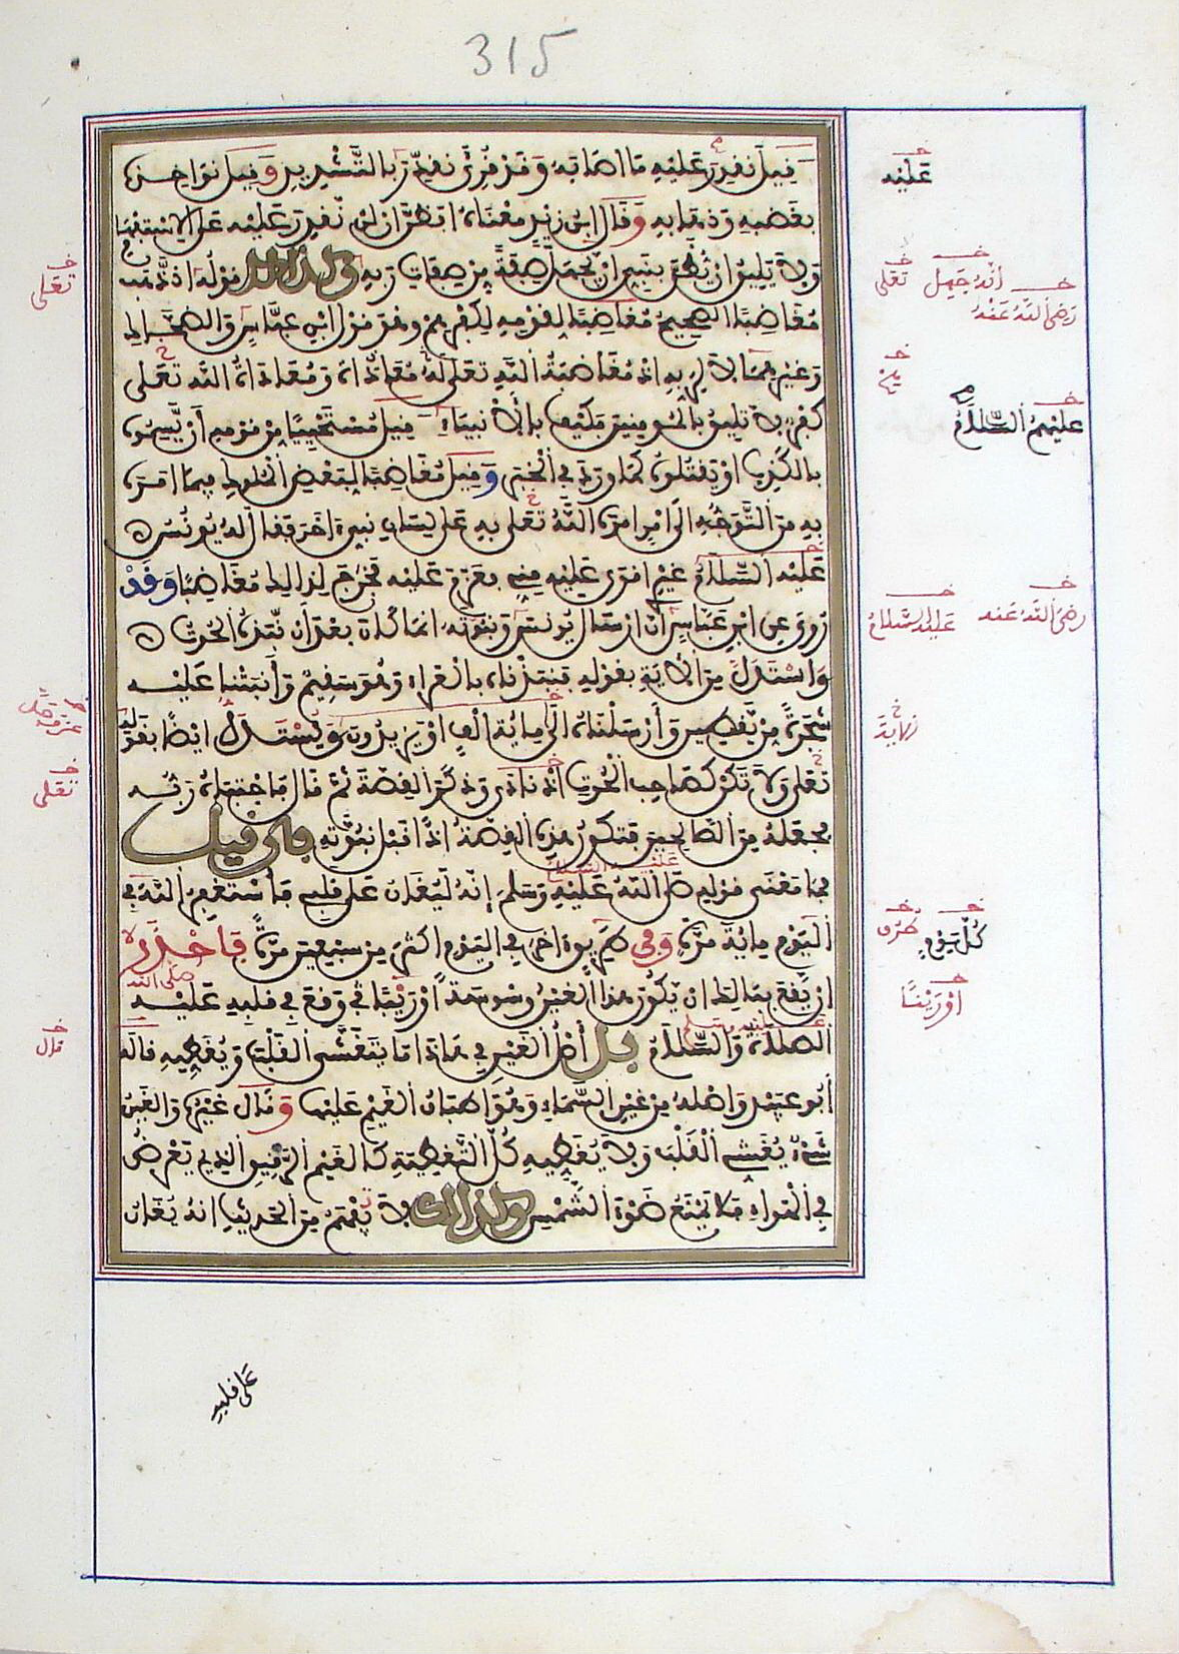 315
قيل نقدر عليه ما اصابه وقد قرئ نقدّر بالتّشديد وقيل نواخذه
بغضبه وذهابه وقال ابن زيد معناه افظن ان لن نقدر عليه على الاستفهام
ولا يليق ان يظن بنبي ان يجهل صفة من صفات ربه وكذلك قوله اذ ذهب
مغاضبا الصحيح مغاضبا لقومه لكفرهم وهو قول ابن عباس والضحاك
وغيرهما لا لربه اذ مغاضبة الله تعلى له معاداة ومعاداة الله تعلى
كفر لا تليق بالمومنين فكيف بالانبياء قيل مستحييا من قومه أن يسموه
بالكذب او يقتلوه كما ورد في الخبر وقيل مغاضبا لبعض الملوك فيما امره
به من التوجه الى امر امره الله تعلى به على لسان نبيء اخر فقال له يونس
عليه السلام غيري اقوى عليه مني فعزم عليه فخرج لذلك مغاضبا وقد
روي عن ابن عباس ان ارسال يونس ونبوته انما كان بعد ان نبذه الحوت
واستدل من الاية بقوله فنبذناه بالعراء وهو سقيم وأنبتنا عليه
شجرة من يقطين وأرسلناه الى مائة الف او يزيدون ويستدل ايضا بقوله
تعلى ولا تكن كصاحب الحوت اذ نادى وذكر القصة ثم قال فاجتباه ربه
فجعله من الصالحين فتكون هذه القصة اذا قبل نبوته فان قيل
فما معنى قوله صلى الله عليه وسلم إنه ليغان على قلبي فأستغفر الله في
اليوم مائة مرة وفي طريق اخرى في اليوم اكثر من سبعين مرة فاحذر
ان يقع ببالك ان يكون هذا الغين وسوسة او ريبا وقع في قلبه عليه
الصلاة والسلام بل أصل الغين في هذا ما يتغشى القلب ويغطيه قاله
أبو عبيد واصله من غين السماء وهو اطباق الغيم عليها وقال غيره والغين
شيء يغشي القلب ولا يغطيه كل التغطية كالغيم الرقيق الذي يعرض
في الهواء فلا يمنع ضوء الشمس وكذلك لا يفهم من الحديث انه يغان
على قلبه
عليه
انه جهل
تعلى
رضي الله عنه
عليهم السلام
رضي الله عنه
عليه السلام
كل يوم
او رينا
تعلى
تعلى
قال